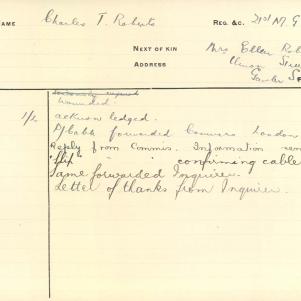 NAME Charles T. Roberts REG. &C. 21st M.G
NEXT OF KIN Mrs Ellen Rob
ADDRESS Street
wounded.
1/2 acknowledged.
Cable forwarded Commrs London
Reply from Commis. Information
"flip" " " confirming cable
Same forwarded Inquirer.
Letter of thanks from Inquirer.